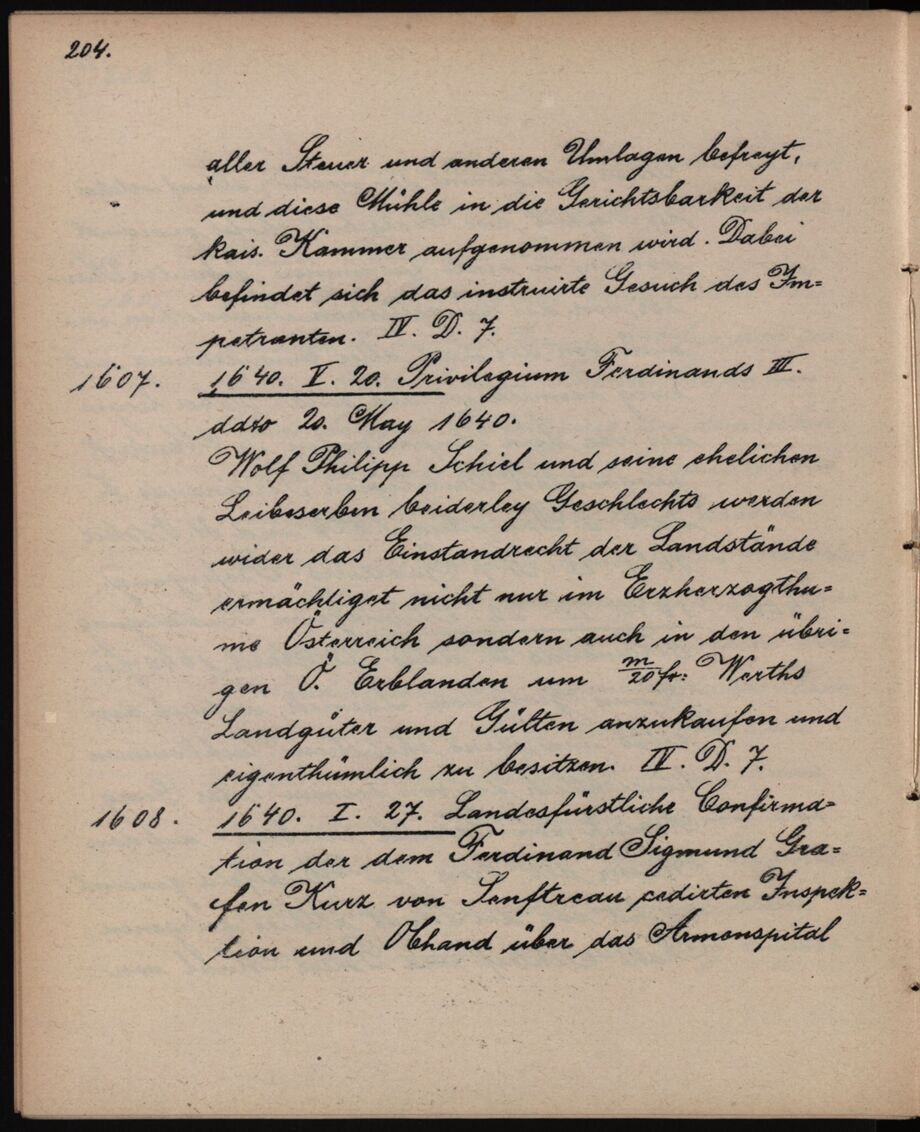 204.
aller Steuer und anderen Umlagen befreyt,
und diese Mühle in die Gerichtsbarkeit der
kais. Kammer aufgenommen wird. Dabei
befindet sich das instruirte Gesuch des Im=
petranten. IV. D. 7.
1607. 1640. V. 20. Privilegium Ferdinands III.
ddto 20. May 1640.
Wolf Philipp Schiel und seine ehelichen
Leibeserben beiderley Geschlechts werden
wider das Einstandrecht der Landstände
ermächtiget nicht nur im Erzherzogthu=
me Österreich sondern auch in den übri=
gen Ö. Erblanden um m/20 fr: Werths
Landgüter und Gülten anzukaufen und
eigenthümlich zu besitzen. IV. D. 7.
1608. 1640. I. 27. Landesfürstliche Confirma=
tion der dem Ferdinand Sigmund Gra=
fen Kurz von Senftreau cedirten Inspek=
tion und Obhand über das Armenspital